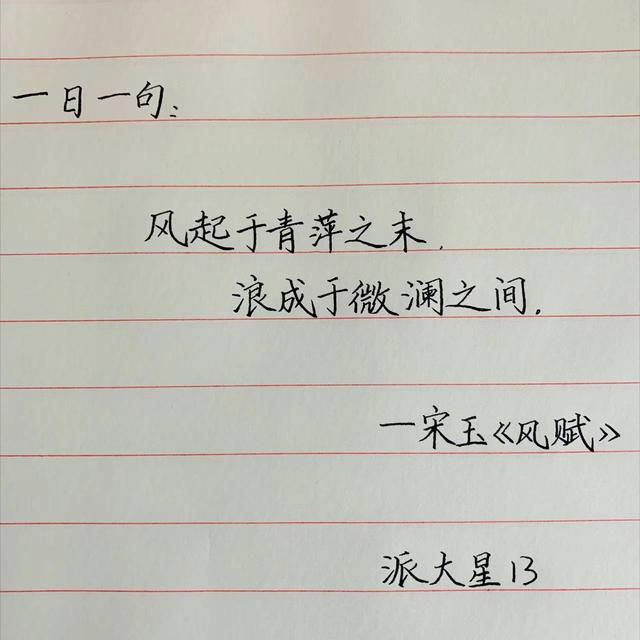 一日一句:
风起于青萍之末,
浪成于微澜之间.
一宋玉《风赋》
派大星13